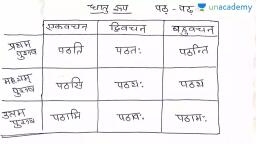 धातु रूप पठ् - पढ़ unacademy
एकवचन द्विवचन बहुवचन
प्रथम पुरुष पठति पठतः पठन्ति
मध्यम पुरुष पठसि पठथः पठथ
उत्तम पुरुष पठामि पठावः पठामः